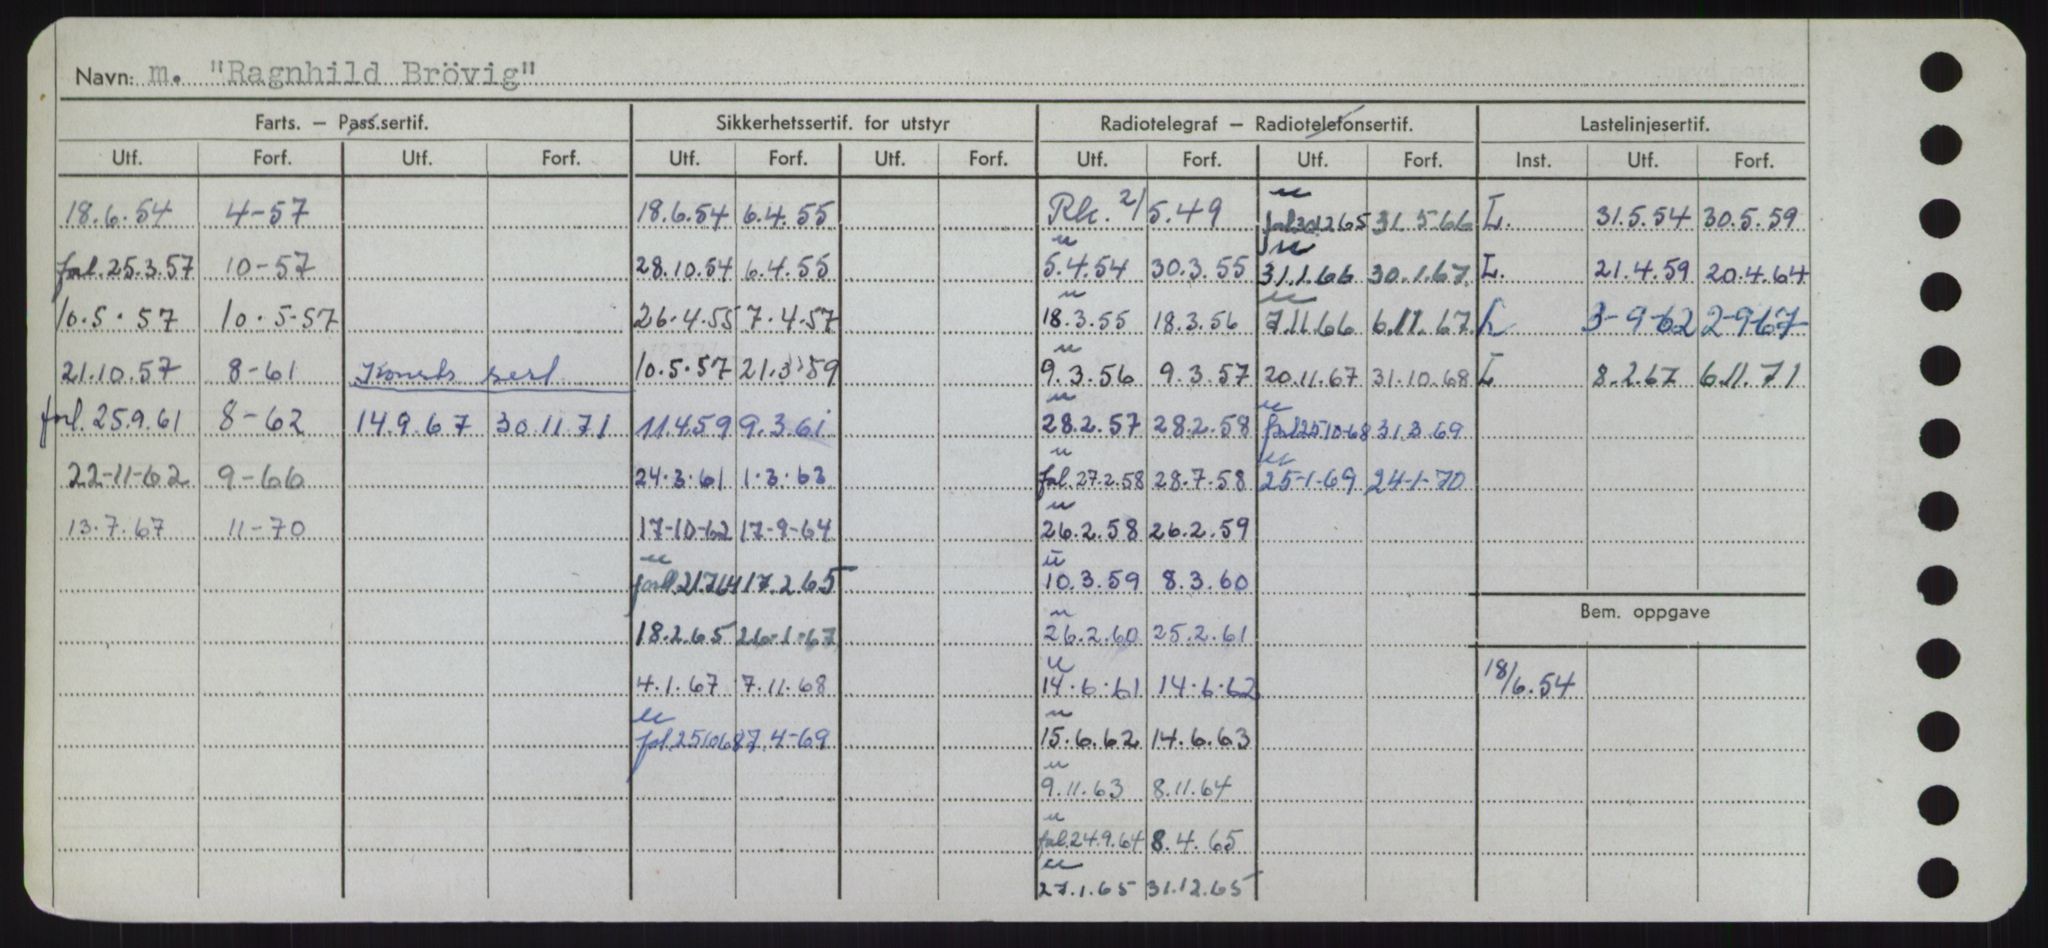 Navn: m. "Ragnhild Brövig"
Farts. — Pass.sertif. Sikkerhetssertif. for utstyr Radiotelegraf — Radiotelefonsertif. Lastelinjesertif.
Utf. Forf. Utf. Forf. Utf. Forf. Utf. Forf. Utf. Forf. Utf. Forf. Inst. Utf. Forf.
18.6.54 4-57 18.6.54 6.4.55 Rk. 2/5.49 forl. 31.5.66 L. 31.5.54 30.5.59
forl. 25.3.57 10-57 28.10.54 6.4.55 5.4.54 30.3.55 31.1.66 30.1.67. L. 21.4.59 20.4.64
10.5.57 10.5-57 26.4.55 7.4.57 18.3.55 18.3.56 7.11.66 6.11.67. L 3-9-62 2-9-67
21.10.57 8-61 10.5.57 21.3.59 9.3.56 9.3.57 20.11.67 31.10.68 L 8.2.67 6.11.71
forl. 25.9.61 8-62 14.9.67 30.11.71 11.4.59 9.3.61 28.2.57 28.2.58 forl. 25.10.68 31.3.69
22-11-62 9-66 24.3.61 1.3.63 forl. 27.2.58 28.7.58 25-1-69 24-1-70
13.7.67 11-70 17-10-62 17-9-64 26.2.58 26.2.59
forl. 21.7.64 17.2.65 10.3.59 8.3.60
Bem. oppgave
18.2.65 26.1.67 26.2.60 25.2.61
4.1.67 7.11.68 14.6.61 14.6.62 18/6.54
forl. 25.10.68 7.4-69 15.6.62 14.6.63
9.11.63 8.11.64
forl. 24.9.64 8.4.65
27.1.65 31.12.65